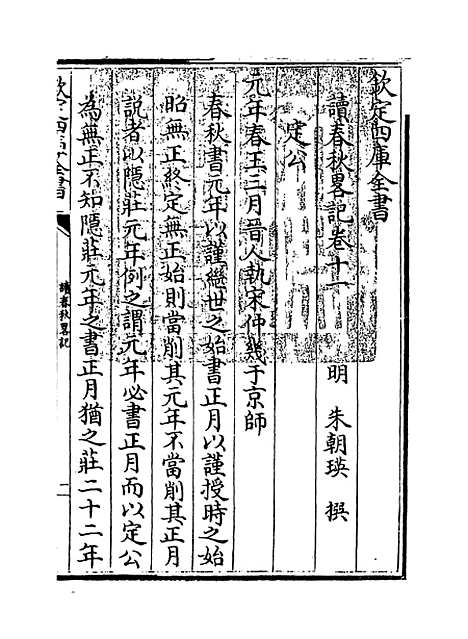 欽定四庫全書
讀春秋畧記卷十一
明 朱朝瑛 撰
定公
元年春王三月晉人執宋仲幾于京師
春秋書元年以謹繼世之始書正月以謹授時之始
昭無正終定無正始則當削其元年不當削其正月
說者以隱莊元年例之謂元年必書正月而以定公
為無正不知隱莊元年之書正月猶之莊二十二年
欽定四庫全書
讀春秋畧記